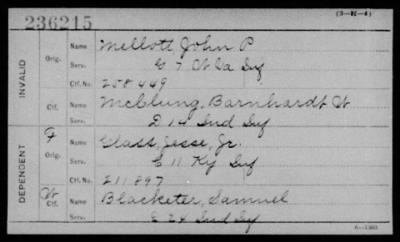 236215
(3-H-4)
INVALID
Orig. Name Mellott, John P
Serv. G 7 W Va Inf
Ctf. No. 258449
Ctf. Name McClung, Barnhardt W
Serv. D 14 Ind Inf
DEPENDENT
F Orig. Name Glass, Jesse, Jr.
Serv. E 11 Ky Inf
Ctf. No. 211897
W Ctf. Name Blacketer, Samuel
Serv. E 24 Ind Inf